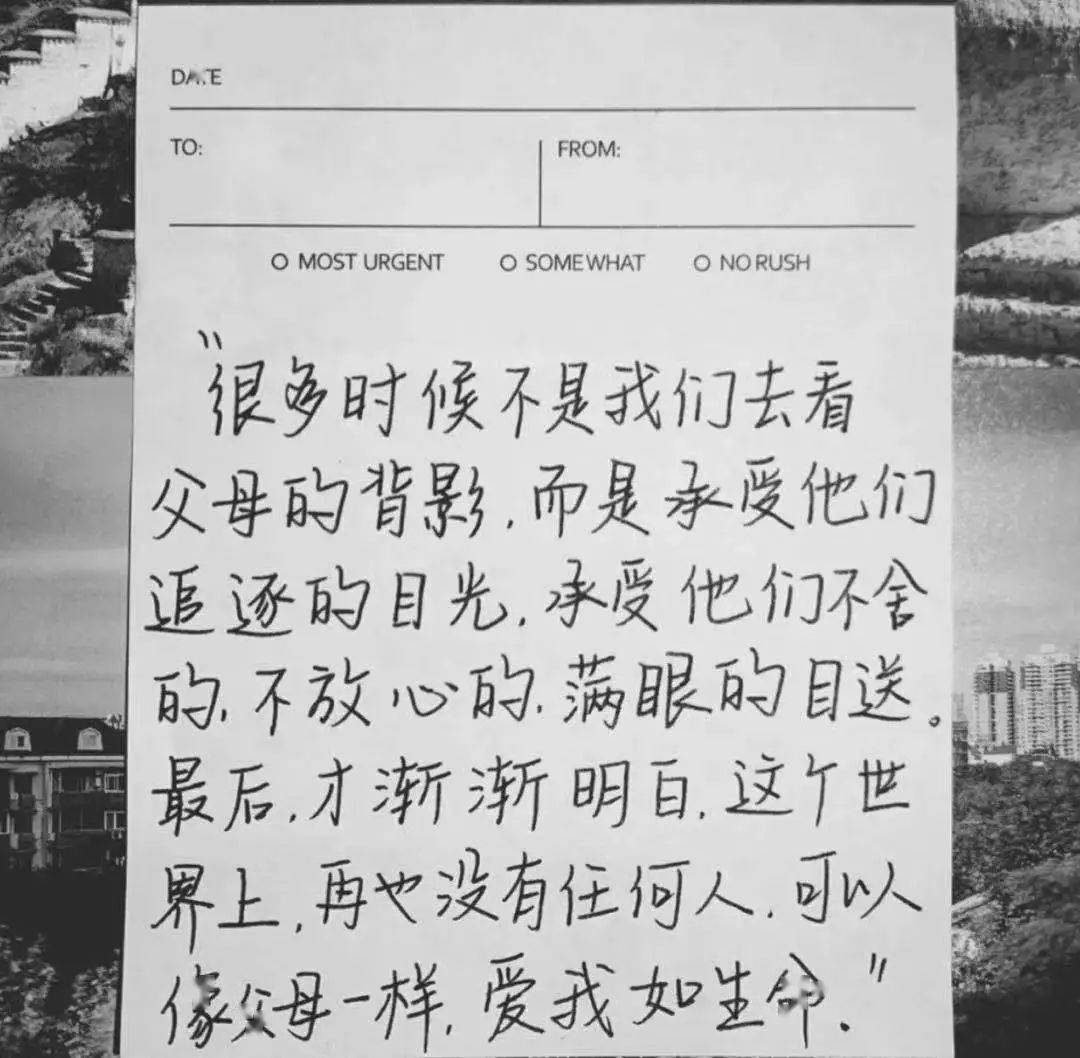 DATE
TO:
FROM:
O MOST URGENT O SOMEWHAT O NO RUSH
"很多时候不是我们去看
父母的背影,而是承受他们
追逐的目光,承受他们不舍
的,不放心的,满眼的目送。
最后,才渐渐明白,这个世
界上,再也没有任何人,可以
像父母一样,爱我如生命."